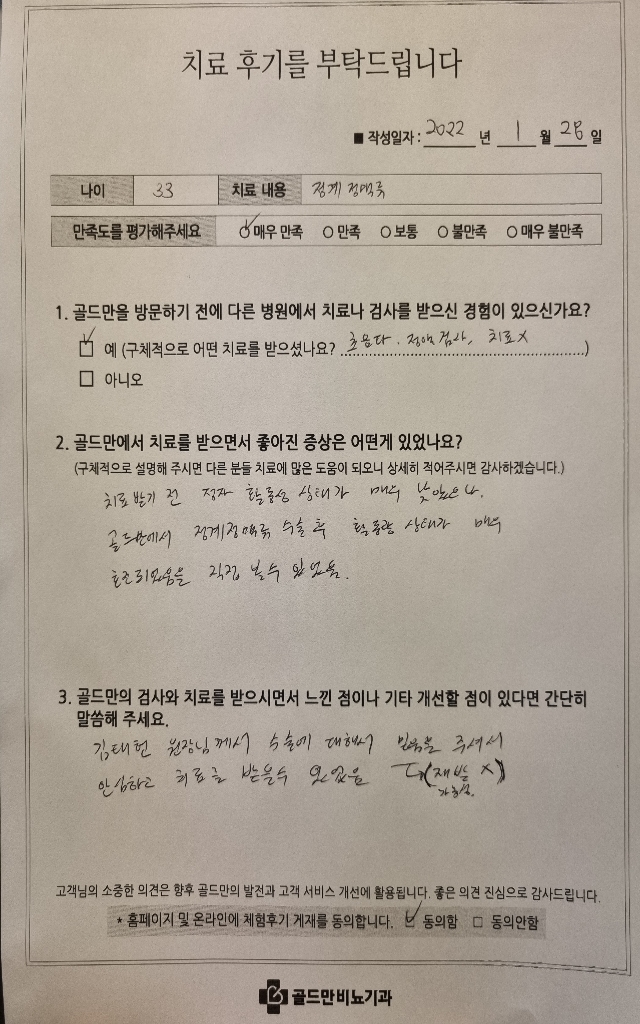 치료 후기를 부탁드립니다
■ 작성일자 : 2022 년 1 월 28 일
나이 33 치료 내용 정계 정맥류
만족도를 평가해주세요 매우 만족 만족 보통 불만족 매우 불만족
1. 골드만을 방문하기 전에 다른 병원에서 치료나 검사를 받으신 경험이 있으신가요?
예 (구체적으로 어떤 치료를 받으셨나요? 초음파. 정액검사, 치료X)
아니오
2. 골드만에서 치료를 받으면서 좋아진 증상은 어떤게 있었나요?
(구체적으로 설명해 주시면 다른 분들 치료에 많은 도움이 되오니 상세히 적어주시면 감사하겠습니다.)
치료 받기 전 정자 활동성 상태가 매우 낮았으나,
골드만에서 정계정맥류 수술 후 활동량 상태가 매우
호전되었음을 직접 볼수 있었음.
3. 골드만의 검사와 치료를 받으시면서 느낀 점이나 기타 개선할 점이 있다면 간단히
말씀해 주세요.
김태헌 원장님께서 수술에 대해서 믿음을 주셔서
안심하고 치료를 받을수 있었음 (재발 X)
고객님의 소중한 의견은 향후 골드만의 발전과 고객 서비스 개선에 활용됩니다. 좋은 의견 진심으로 감사드립니다.
* 홈페이지 및 온라인에 체험후기 게재를 동의합니다. 동의함 동의안함
골드만비뇨기과